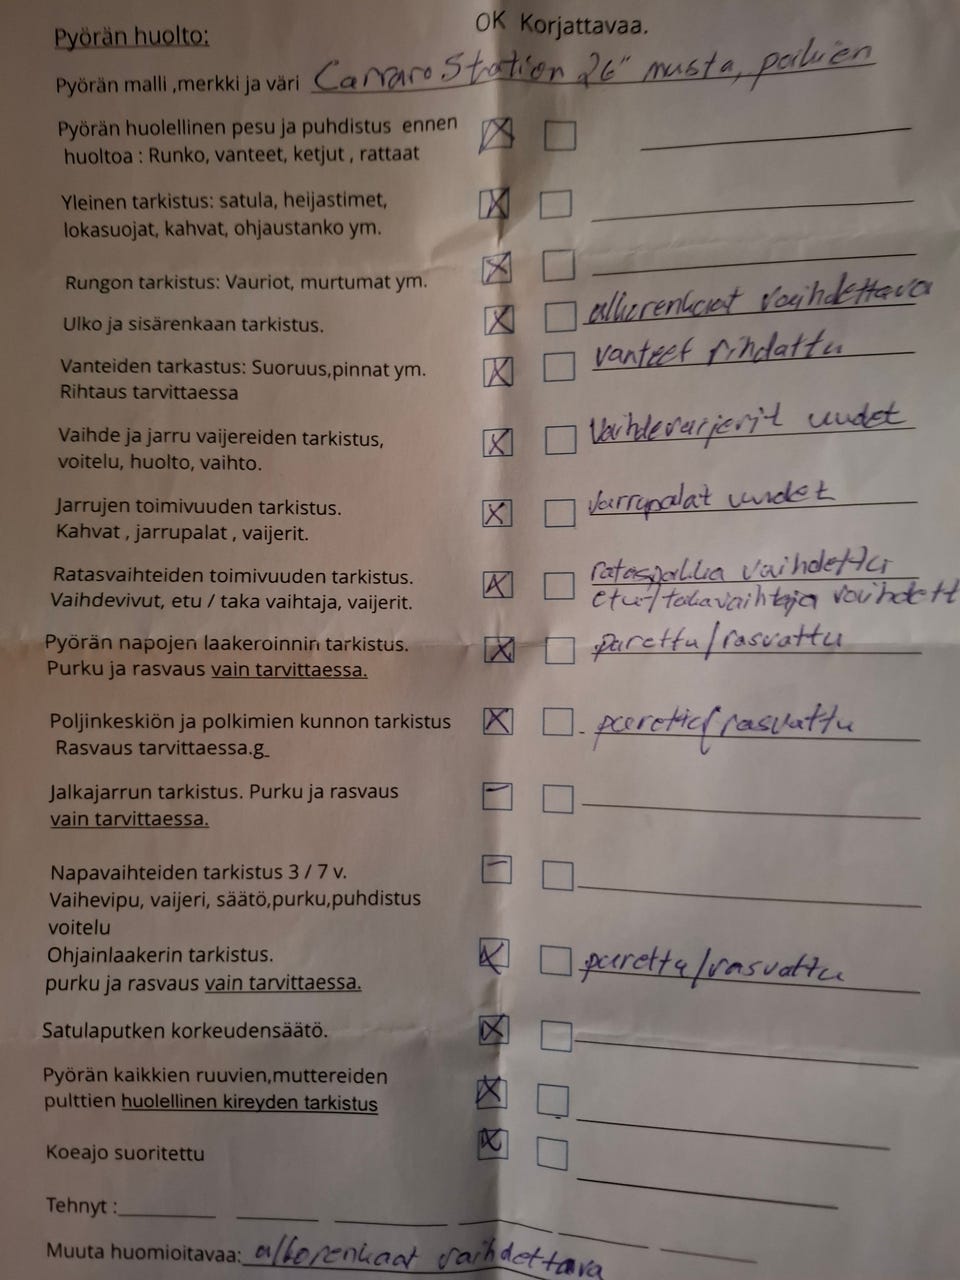 OK Korjattavaa.
Pyörän huolto:
Pyörän malli ,merkki ja väri Carraro Station 26" musta, poikien
Pyörän huolellinen pesu ja puhdistus ennen
huoltoa : Runko, vanteet, ketjut , rattaat
Yleinen tarkistus: satula, heijastimet,
lokasuojat, kahvat, ohjaustanko ym.
Rungon tarkistus: Vauriot, murtumat ym.
Ulko ja sisärenkaan tarkistus. ulkorenkaat vaihdettava
Vanteiden tarkastus: Suoruus,pinnat ym. vanteet rihdattu
Rihtaus tarvittaessa
Vaihde ja jarru vaijereiden tarkistus, Vaihdevaijerit uudet
voitelu, huolto, vaihto.
Jarrujen toimivuuden tarkistus. Jarrupalat uudet
Kahvat , jarrupalat , vaijerit.
Ratasvaihteiden toimivuuden tarkistus. rataspakka vaihdettu
Vaihdevivut, etu / taka vaihtaja, vaijerit. etu-/takavaihtaja vaihdett
Pyörän napojen laakeroinnin tarkistus. purettu/rasvattu
Purku ja rasvaus vain tarvittaessa.
Poljinkeskiön ja polkimien kunnon tarkistus purettu/rasvattu
Rasvaus tarvittaessa.g_
Jalkajarrun tarkistus. Purku ja rasvaus
vain tarvittaessa.
Napavaihteiden tarkistus 3 / 7 v.
Vaihevipu, vaijeri, säätö,purku,puhdistus
voitelu
Ohjainlaakerin tarkistus. purettu/rasvattu
purku ja rasvaus vain tarvittaessa.
Satulaputken korkeudensäätö.
Pyörän kaikkien ruuvien,muttereiden
pulttien huolellinen kireyden tarkistus
Koeajo suoritettu
Tehnyt :
Muuta huomioitavaa: ulkorenkaat vaihdettava